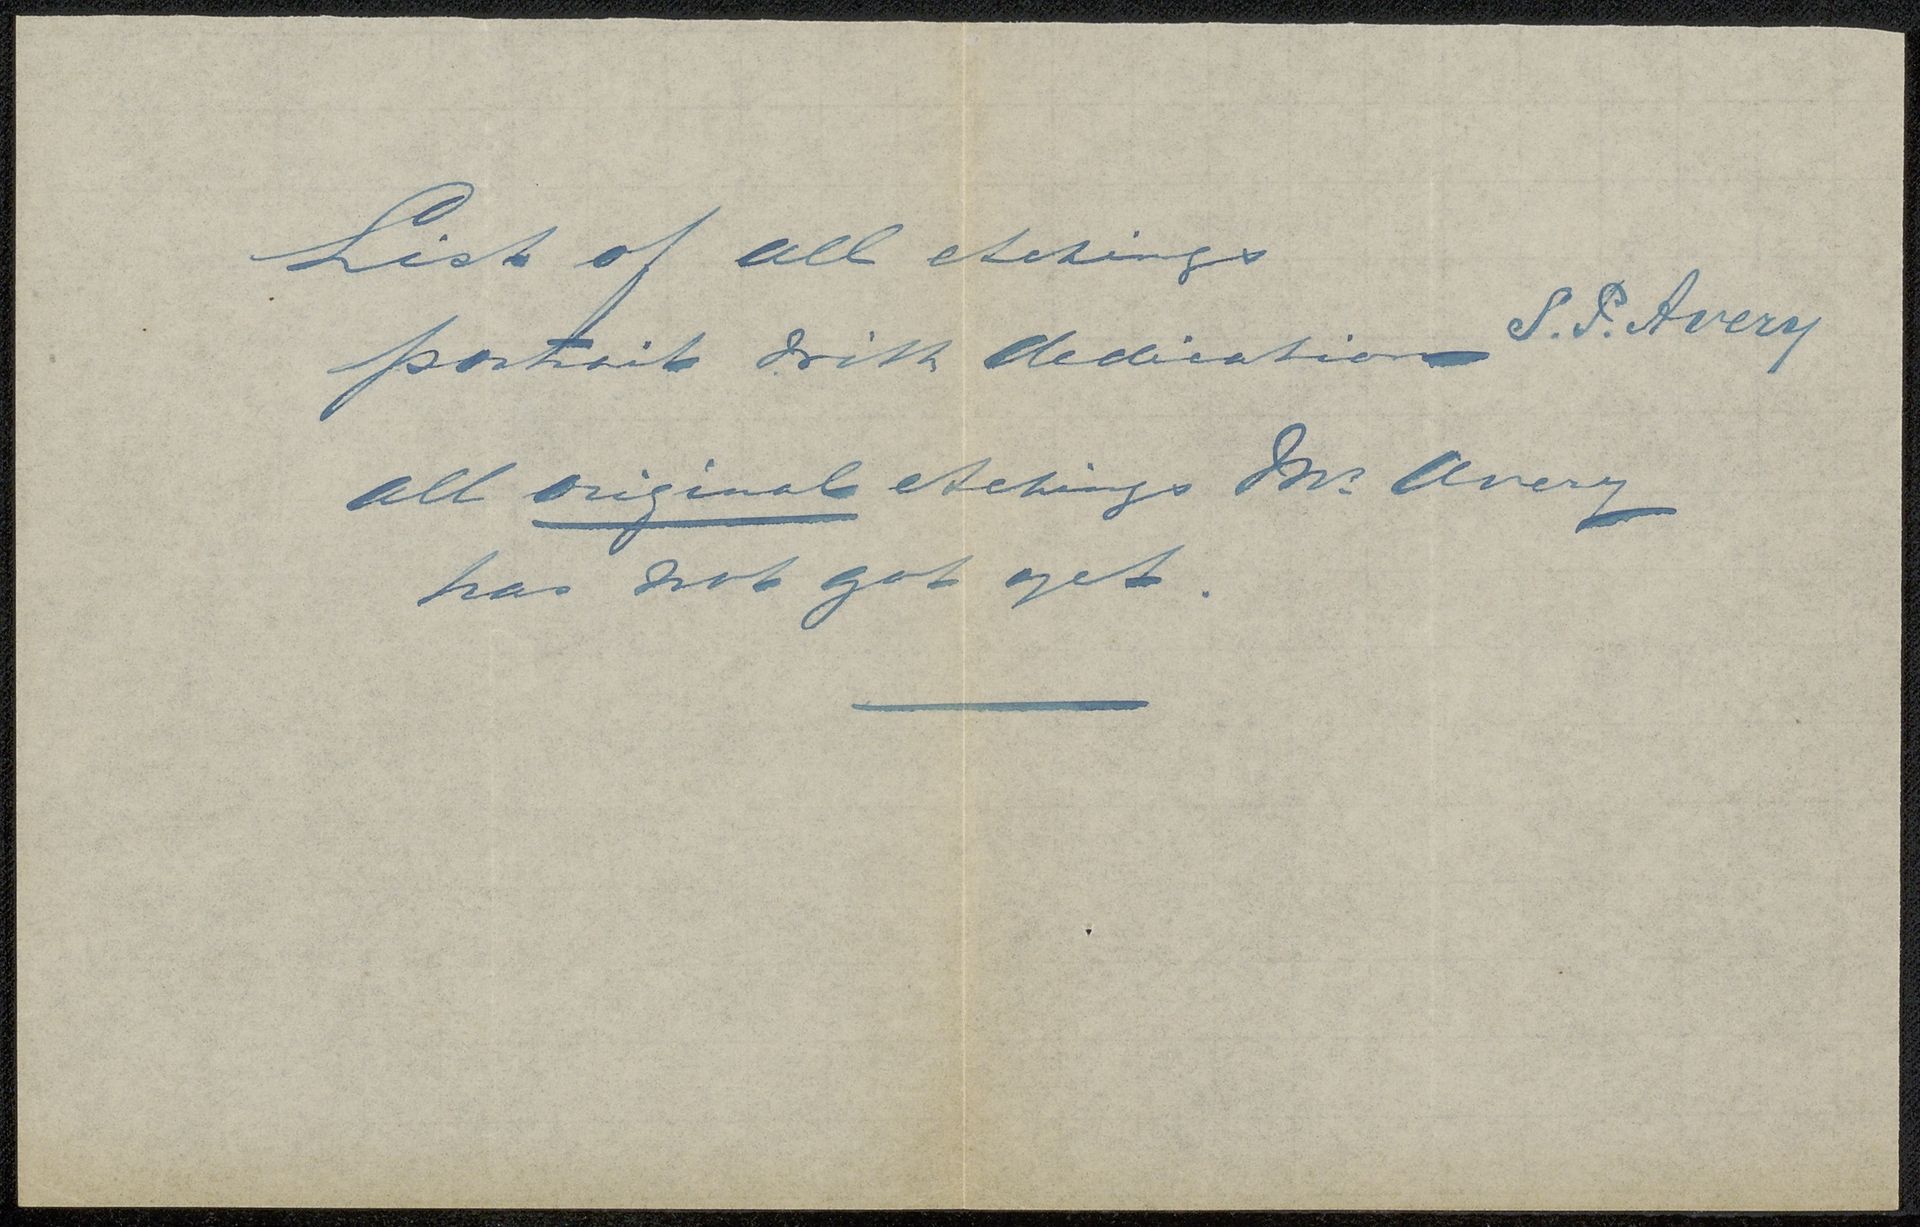 List of all etchings
portrait with dedication S. P. Avery
all original etchings Mr Avery
has not got yet.